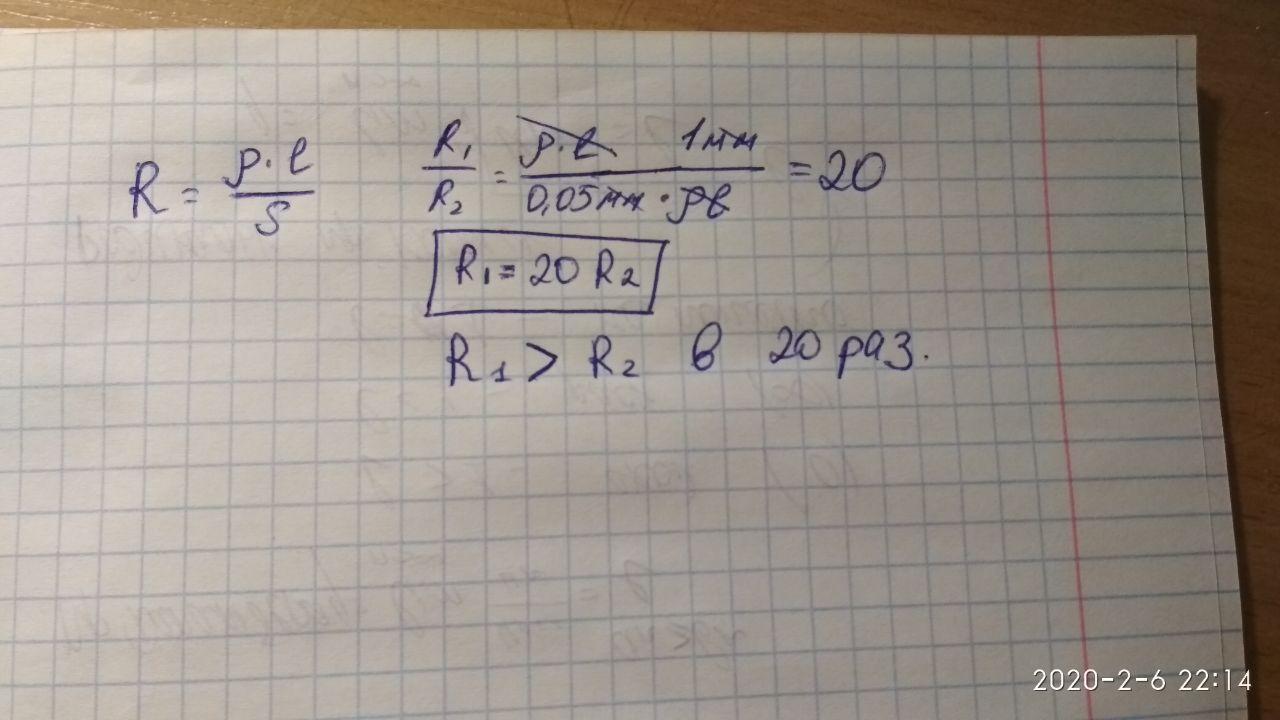 R = ρ·l / S
R₁ / R₂ = ρ·l 1мм / 0,05мм·ρl = 20
R₁ = 20 R₂
R₁ > R₂ в 20 раз.
2020-2-6 22:14